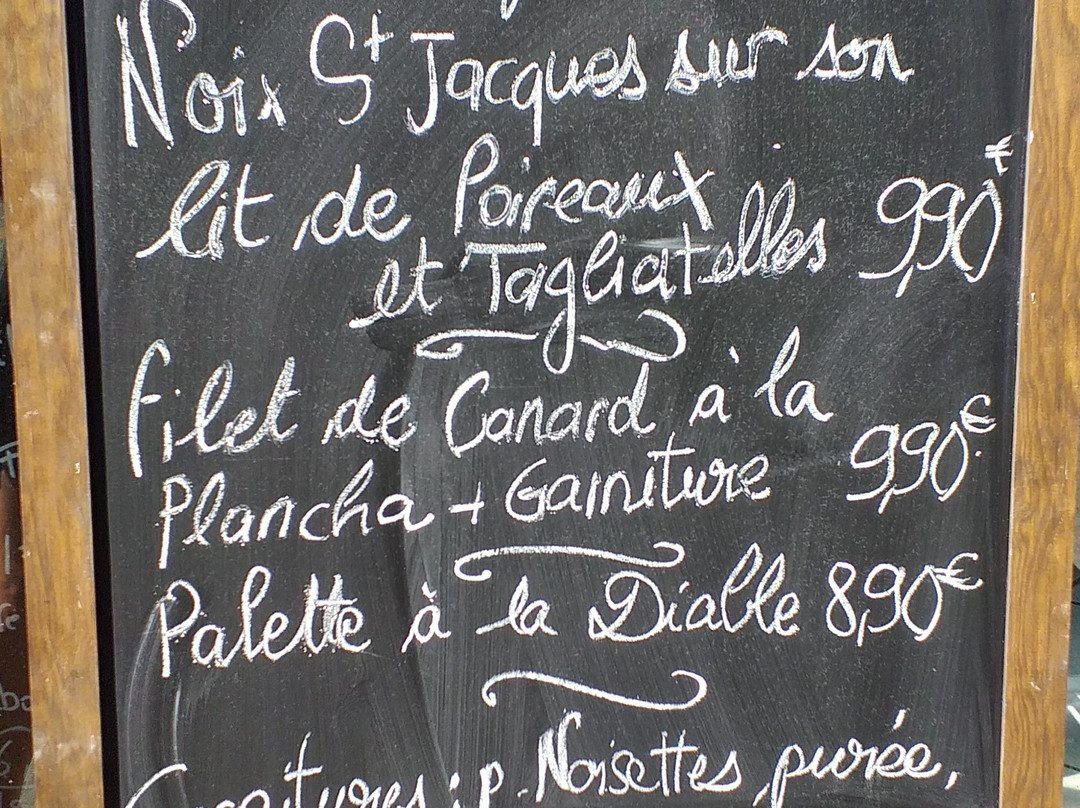 Noix St Jacques sur son
lit de Poireaux
et Tagliatelles 9,90€
filet de Canard à la
Plancha + Garniture 9,90€
Palette à la Diable 8,90€
Garnitures : p. Noisettes, purée,